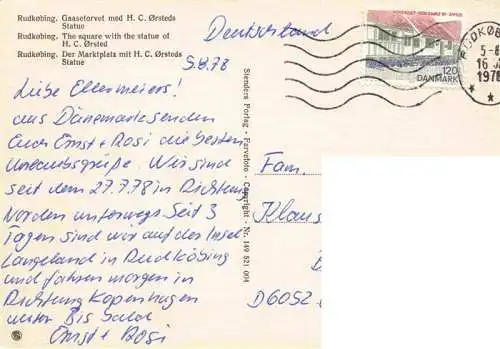 Rudkøbing. Gaasetorvet med H. C. Ørsteds
Statue
Rudkøbing. The square with the statue of
H. C. Ørsted
Rudkøbing. Der Marktplatz mit H. C. Ørsteds
Statue
Deutschland
5.8.78
Liebe Ellermeiers!
aus Dänemark senden
Euch Ernst + Rosi die besten
Urlaubsgrüße. Wir sind
seit dem 27.7.78 in Richtung
Norden unterwegs. Seit 3
Tagen sind wir auf der Insel
Langeland in Rudköbing
und fahren morgen in
Richtung Kopenhagen
weiter. Bis bald
Ernst + Rosi
Stenders Forlag - Farvefoto - Copyright - Nr. 149 521 004
120
DANMARK
RUDKØB
5-6
16
1978
Fam.
Klaus
D6052